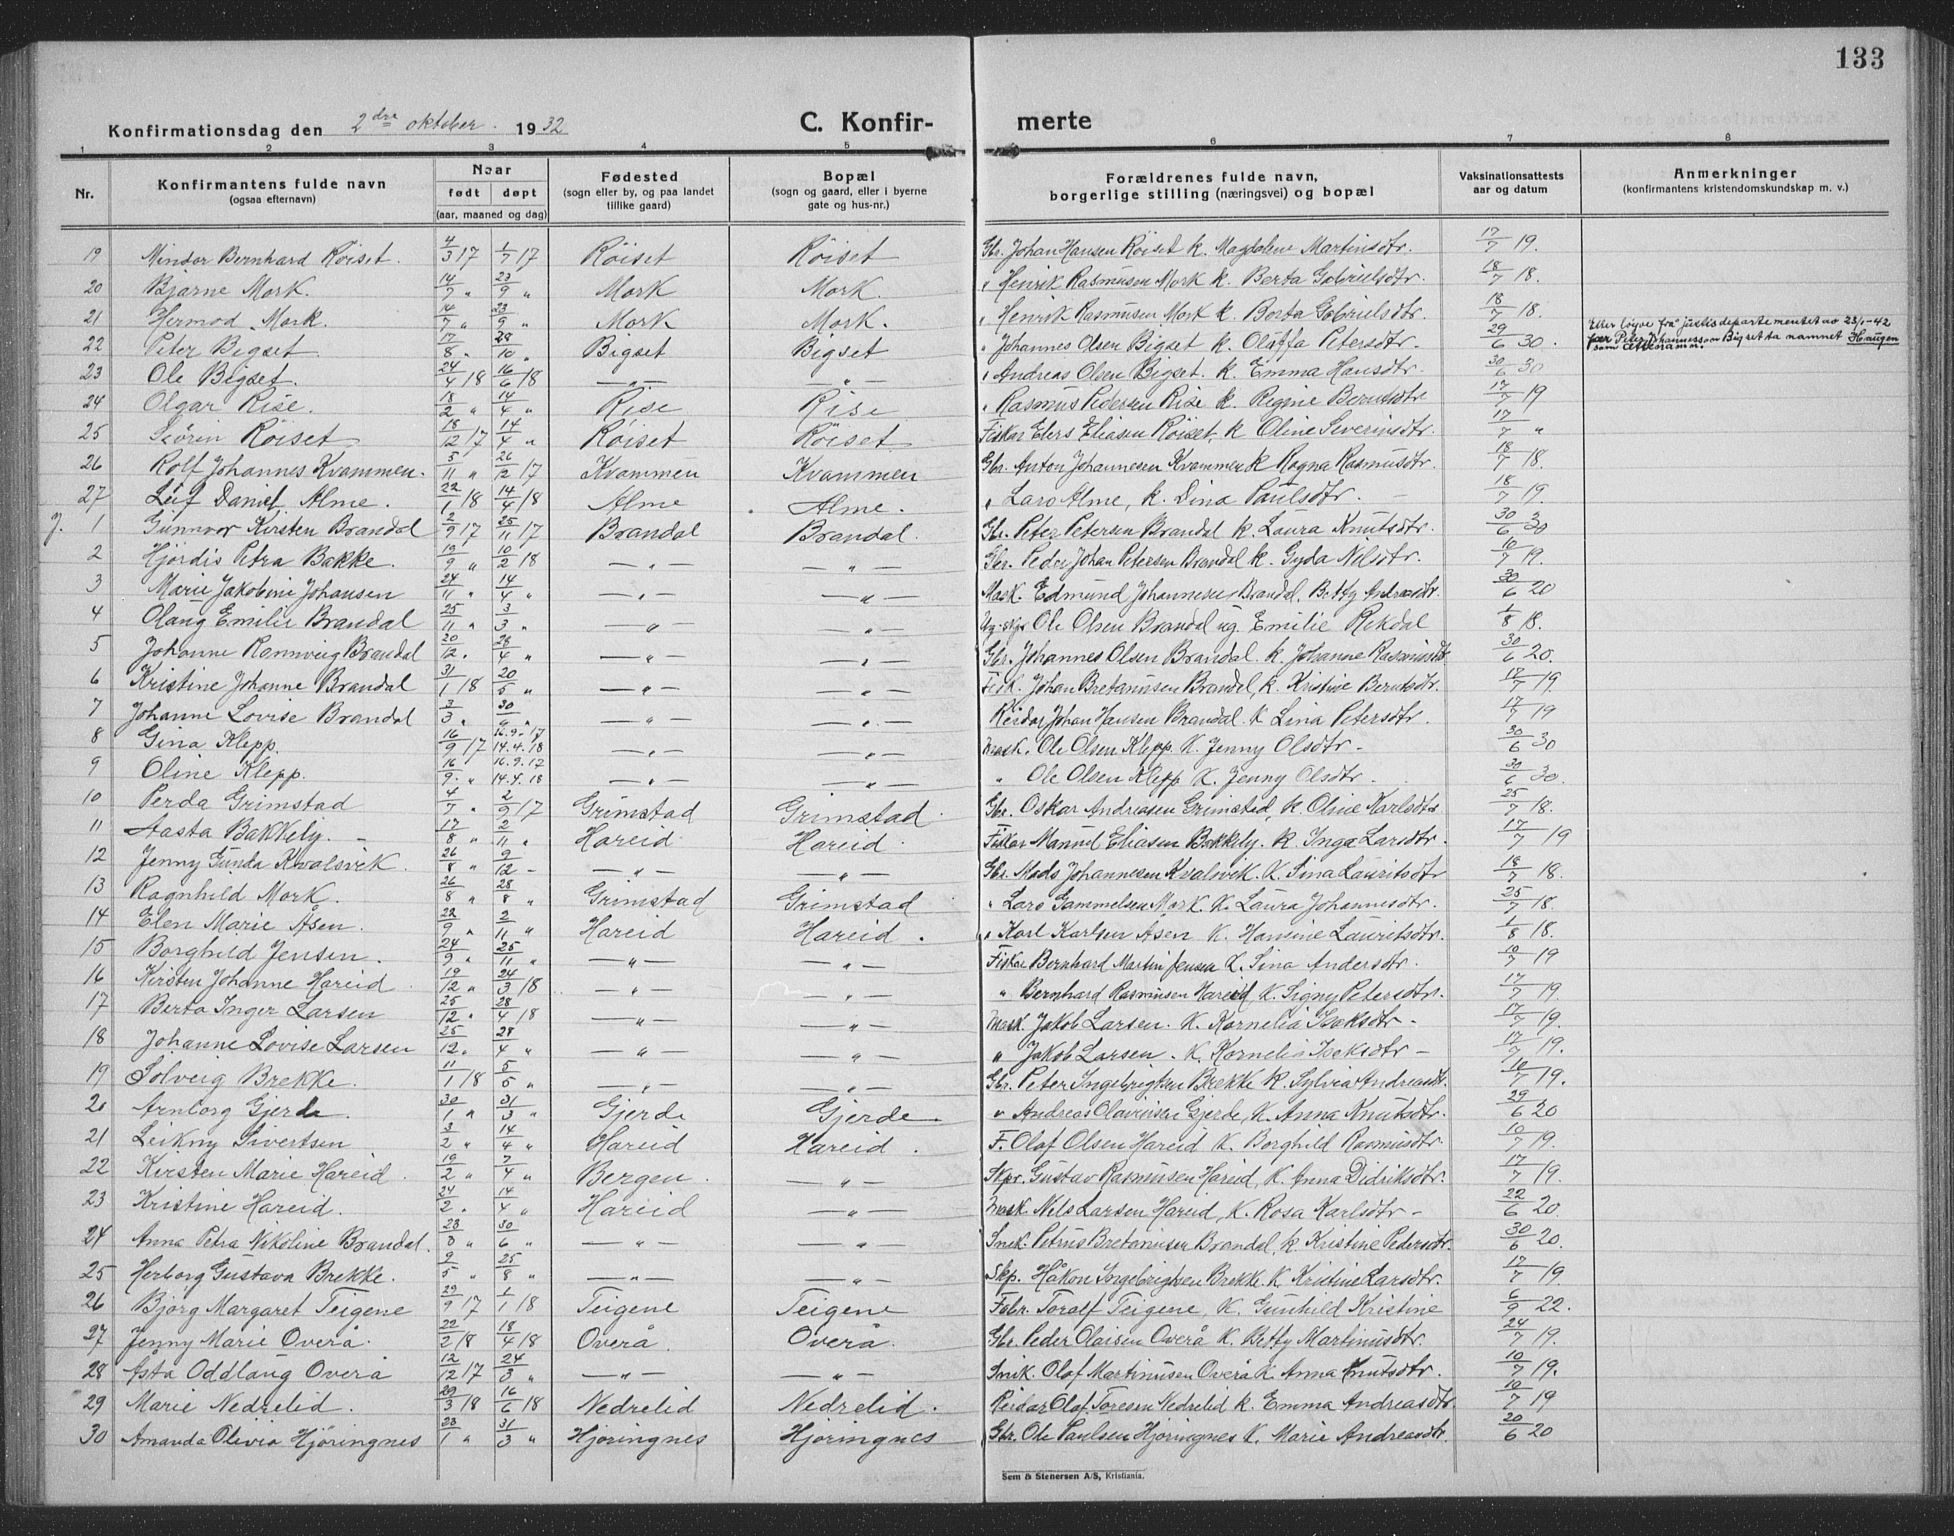 133
Konfirmationsdag den 2dre oktober. 1932 C. Konfir- merte
1 2 3 4 5 6 7 8
Nr. Konfirmantens fulde navn (ogsaa efternavn) Naar født døpt (aar, maaned og dag) Fødested (sogn eller by, og paa landet tillike gaard) Bopæl (sogn og gaard, eller i byerne gate og hus-nr.) Forældrenes fulde navn, borgerlige stilling (næringsvei) og bopæl Vaksinationsattests aar og datum Anmerkninger (konfirmantens kristendomskundskap m. v.)
19 Mindor Bernhard Röiset. 4/3 17 1/7 17 Röiset Röiset Gbr. Johan Hansen Röiset k. Magdalene Martinsdtr. 17/7 19.
20 Bjarne Mork. 14/7 " 23/9 " Mork Mork. " Henrik Rasmussen Mork k. Berta Gabrielsdtr. 18/7 18.
21 Hermod Mork. 14/7 " 23/9 " Mork Mork. " Henrik Rasmussen Mork k. Berta Gabrielsdtr. 18/7 18.
22 Peter Bigset 17/8 " 28/10 " Bigset Bigset " Johannes Olsen Bigset k. Oluffa Petersdtr. 29/6 30. Etter löyve frå justisdepartementet av 23/1-42 fær Peter Johannesson Bigset ta namnet Haugen som ættenamn.
23 Ole Bigset. 24/4 18 16/6 18 — " — — " — " Andreas Olsen Bigset. k. Emma Hansdtr. 30/6 30
24 Olgar Rise. 18/2 " 14/4 " Rise Rise " Rasmus Pedersen Rise k. Regine Berntsdtr 17/7 19
25 Sörin Röiset 18/12 17 14/4 " Röiset Röiset Fiskar Elers Eliasen Röiset, k Oline Severinsdtr. 17/7 "
26 Rolf Johannes Kvammen. 5/11 " 26/2 17 Kvammen Kvammen Gbr. Anton Johannesen Kvammen k Ragna Rasmusdtr. 18/7 18.
27 Leif Daniel Alme. 22/1 18 14/4 18 Alme Alme. " Lars Alme, k. Dina Paulsdtr. 18/7 19.
J. 1 Gunnvor Kirsten Brandal 2/9 17 25/11 17 Brandal Brandal. Gbr. Peter Petersen Brandal k. Laura Knutsdtr. 30/6 30
2 Hjördis Petra Bakke. 19/9 " 10/2 18 — " — — " — Gbr. Peder Johan Petersen Brandal k. Gyda Nilsdtr. 10/7 19.
3 Marie Jakobine Johansen 24/11 " 14/4 " — " — — " — Mask. Edmund Johannesen Brandal, Betty Andreasdtr. 30/6 20
4 Olaug Emilie Brandal 25/11 " 3/3 " — " — — " — Ole Olsen Brandal ug. Emilie Rekdal 1/8 18.
5 Johanne Rannveig Brandal 20/12 " 28/4 " — " — — " — Gbr. Johannes Olsen Brandal. k. Johanne Rasmusdtr 30/6 20.
6 Kristine Johanne Brandal 31/1 18 20/5 " — " — — " — Fisk. Johan Bretanusen Brandal, k. Kristine Berntsdtr. 17/7 19.
7 Johanne Lovise Brandal 3/3 " 30/6 " — " — — " — Reidar Johan Hansen Brandal. k Lina Petersdtr. 17/7 19
8 Gina Klepp. 16/9 17 16.9.17 14.4.18 — " — — " — Mask. Ole Olsen Klepp. k. Jenny Olsdtr. 30/6 30
9 Oline Klepp. 16/9 " 16.9.17 14.4.18 — " — — " — " Ole Olsen Klepp k. Jenny Olsdtr. 30/6 30.
10 Perda Grimstad 4/7 " 2/9 17 Grimstad Grimstad. Gbr. Oskar Andreasen Grimstad, k Oline Karlsdtr 25/7 18.
11 Aasta Bakkely. 17/8 " 2/11 " Hareid Hareid. Fiskar Manuel Eliasen Bakkely. k. Inga Larsdtr. 17/7 19
12 Jenny Gunda Kvalsvik. 26/8 " 9/12 " — " — — " — Gbr. Mads Johannesen Kvalsvik. k. Sina Lauritsdtr 18/7 18.
13 Ragnhild Mork. 26/8 " 28/8 " Grimstad Grimstad " Lars Gammelsen Mork. k. Laura Johannesdtr. 25/7 18.
14 Elen Marie Åsen. 22/9 " 2/11 " Hareid Hareid. " Karl Karlsen Åsen k. Hansine Lauritsdtr. 1/8 18.
15 Borghild Jensen. 24/9 " 25/11 " — " — — " — Fiskar Bernhard Martin Jensen k. Sina Andersdtr. 10/7 19
16 Kirsten Johanne Hareid. 19/12 " 24/3 18 — " — — " — " Bernhard Rasmussen Hareid k. Signy Petersdtr. 17/7 19.
17 Berta Inger Larsen 25/12 " 28/4 18 — " — — " — Mask. Jakob Larsen. k. Kornelia Isaksdtr. 17/7 19.
18 Johanne Lovise Larsen 25/12 " 28/4 " — " — — " — " Jakob Larsen. k. Kornelia Isaksdtr 17/7 19.
19 Solveig Brekke. 11/1 18 5/5 " — " — — " — Gbr. Peter Ingebrigtsen Brekke k. Sylvia Andreasdt. 10/7 19.
20 Arnborg Gjerde. 30/1 " 31/3 " Gjerde Gjerde " Andreas Olavusen Gjerde, k. Anna Knutsdtr. 29/6 20
21 Leikny Sivertsen 3/2 " 14/4 " Hareid Hareid. F. Olaf Olsen Hareid k. Borghild Rasmusdtr. 10/7 19.
22 Kirsten Marie Hareid. 19/2 " 7/4 " Bergen. — " — Skpr. Gustav Rasmussen Hareid, k. Anna Didriksdtr. 17/7 19.
23 Kristine Hareid. 24/2 " 14/4 " Hareid — " — Mask Nels Larsen Hareid, k. Rosa Karlsdtr. 22/6 20.
24 Anna Petra Nikoline Brandal. 23/3 " 30/6 " — " — — " — Snik. Petrus Bretanusen Brandal, k Kristine Pedersdtr. 30/6 20.
25 Herborg Gustava Brekke. 9/5 " 25/8 " — " — — " — Skp. Håkon Ingebrigtsen Brekke. k Kristine Larsdtr. 17/7 19.
26 Bjorg Margaret Teigene 29/9 17 1/1 18 Teigene Teigene Fabr. Toralf Teigene, k. Gunhild Kristine 6/9 22.
27 Jenny Marie Overå. 22/2 18 18/4 18 Overå. Overå. Gbr. Peder Olaisen Overå k. Betty Martinusdtr. 24/7 19.
28 Åsta Oddlaug Overå 12/12 17 24/3 " — " — — " — Snik. Olaf Martinusen Overå k. Anna Knutsdtr. 10/7 19.
29 Marie Nedrelid. 29/3 18 16/6 18 Nedrelid Nedrelid. Reidar Olaf Toresen Nedrelid k. Emma Andreasdtr. 10/7 19
30 Amanda Olivia Hjöringnes 23/1 " 31/3 " Hjöringnes Hjöringnes Gbr. Ole Paulsen Hjöringnes k. Marie Andreasdtr. 20/6 20
Sem & Stenersen A/S, Kristiania.